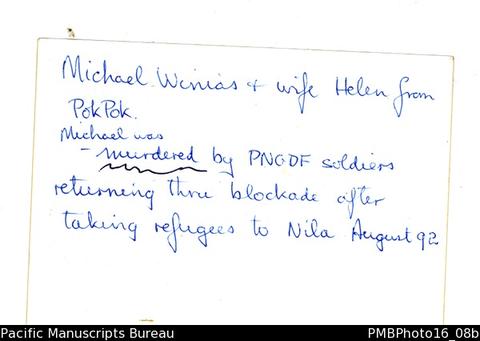 Michael Winias + wife Helen from
PokPok.
Michael was
- murdered by PNGDF soldiers
returning thru blockade after
taking refugees to Nila August 92
Pacific Manuscripts Bureau
PMBPhoto16_08b